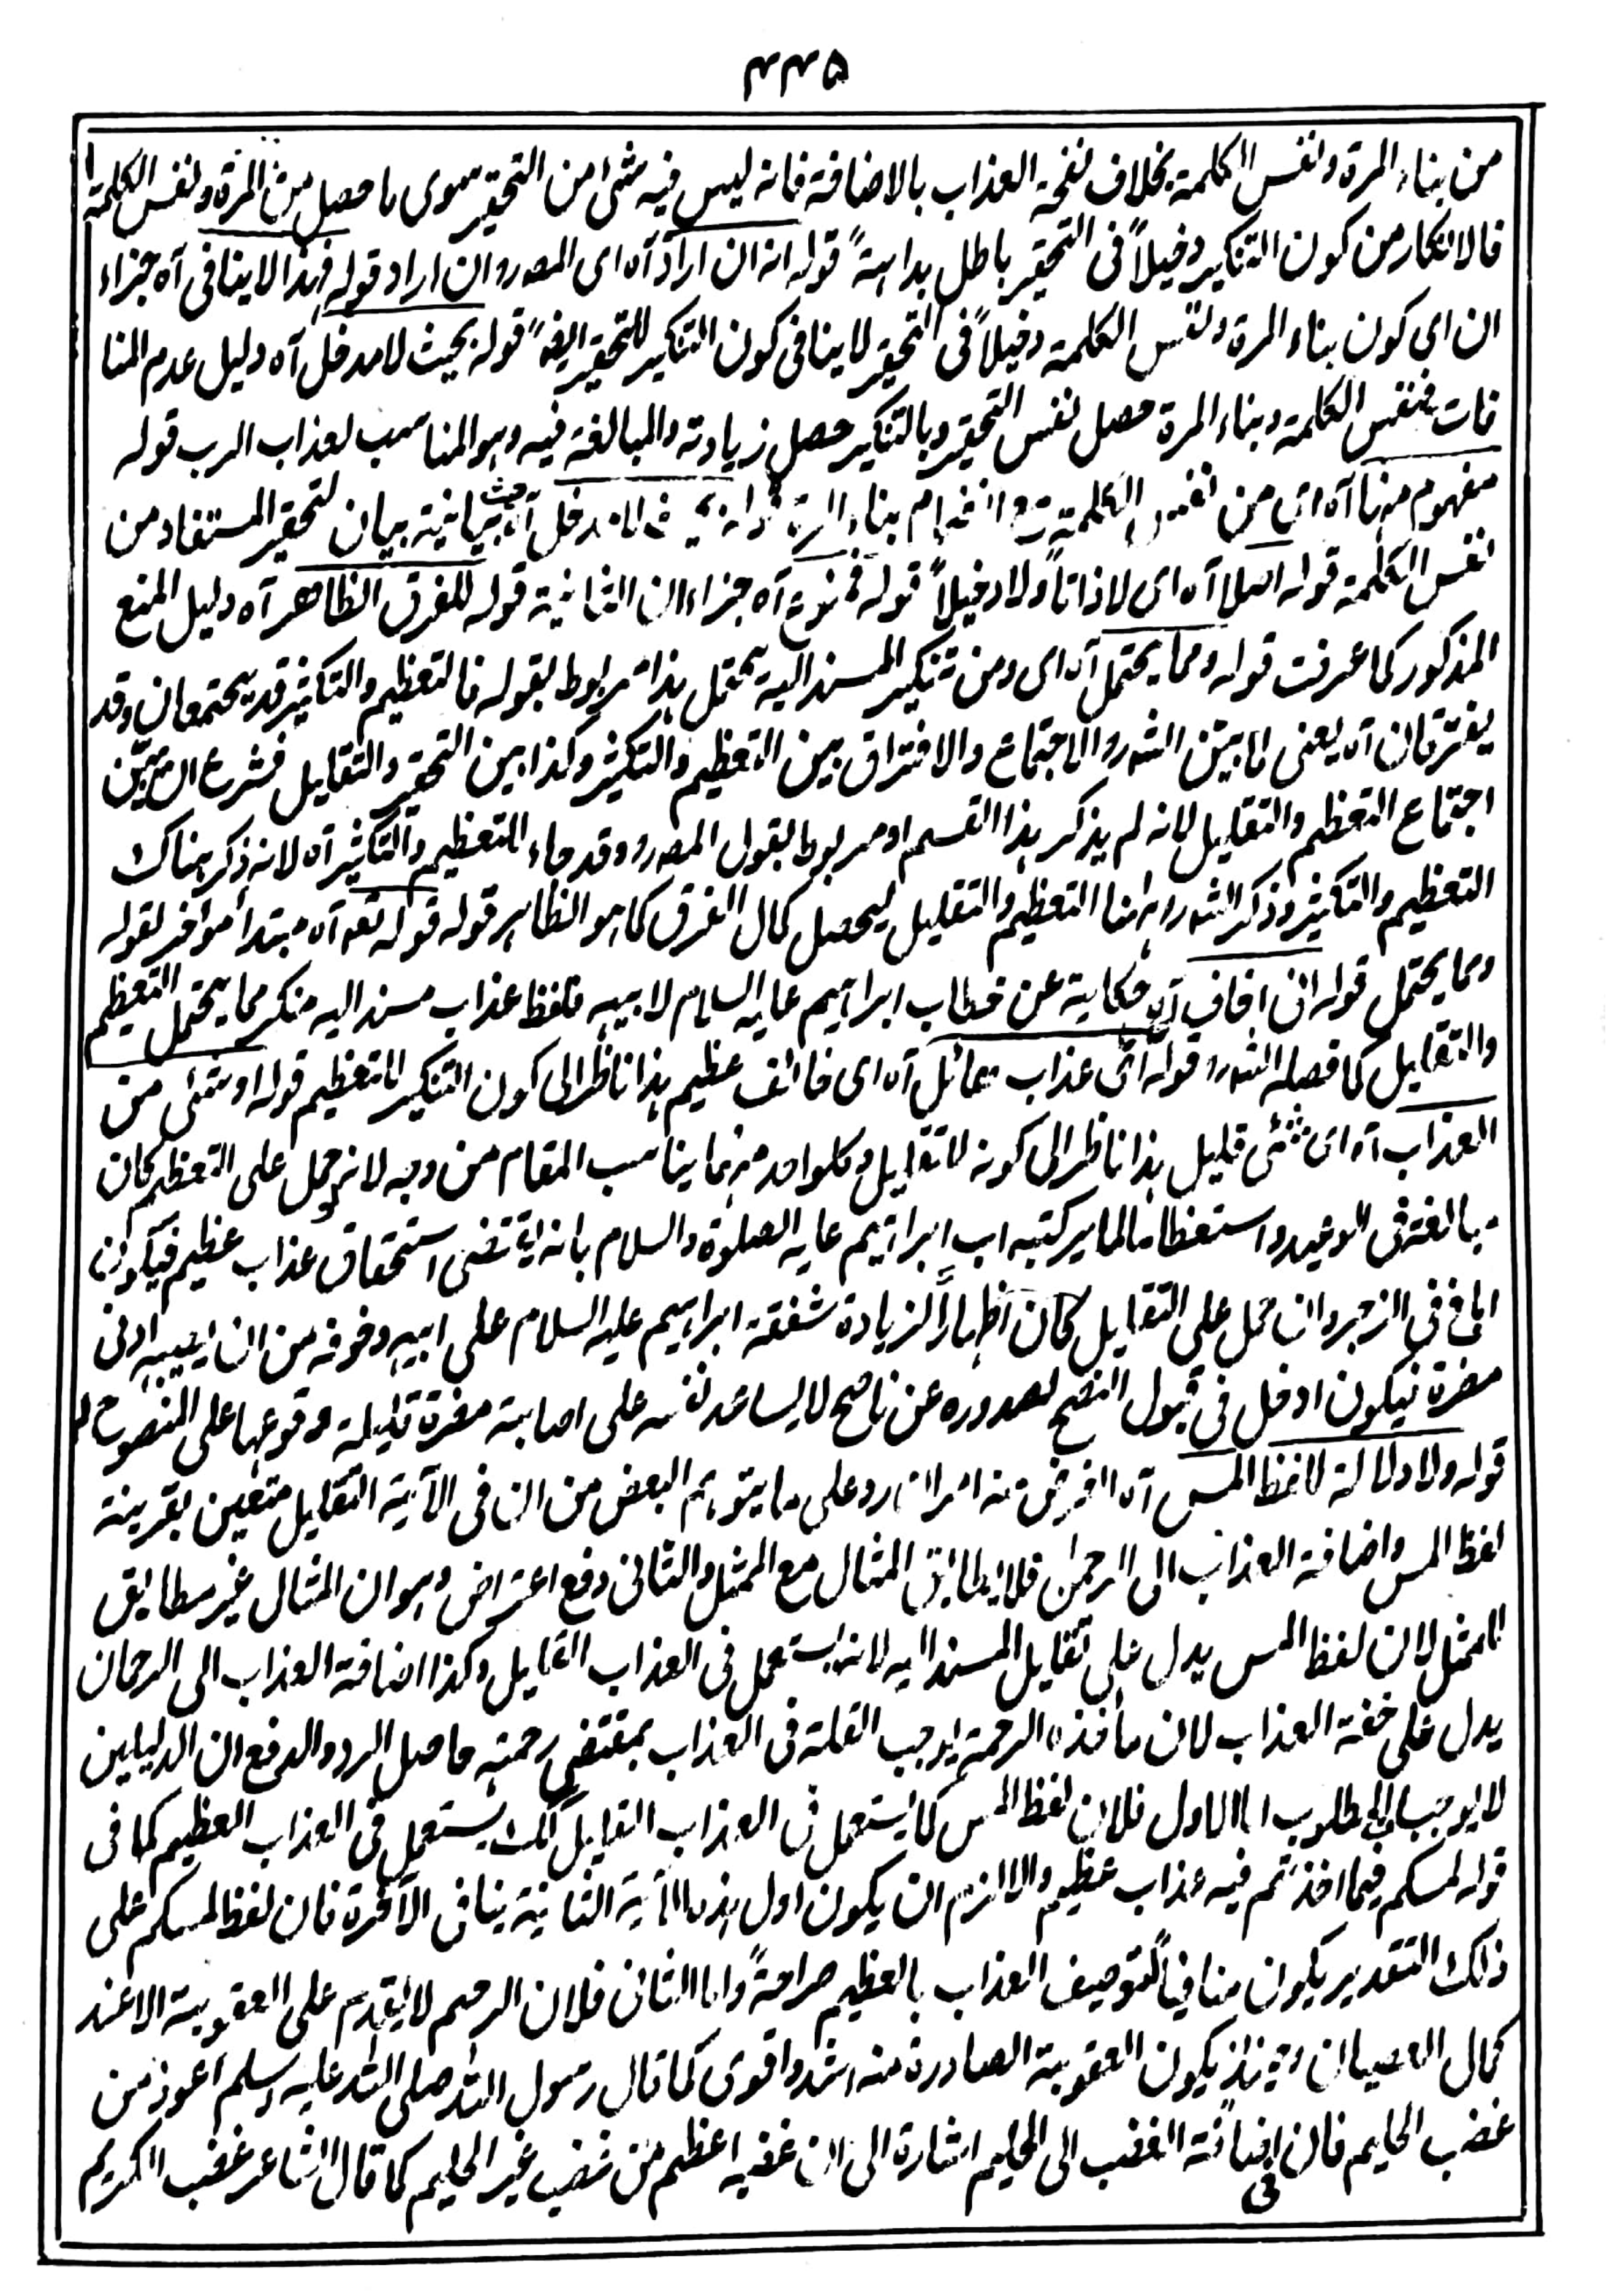 ۴۴۵
من بناء المرة ونفس الكلمة بخلاف نفحة العذاب بالاضافة فانه ليس فيه شئ من التحقير سوى ما حصل من المرة ونفس الكلمة
فالانكار من كون التنكير دخيلاً فى التحقير باطل بداهةً قوله انه ان اراد آه اى المصـ وان اراد قوله فهذا لا ينافى آه جزاء
ان اى كون بناء المرة ونفس الكلمة دخيلاً فى التحقير لا ينافى كون التنكير للتحقير ايضًا قوله بحيث لا مدخل آه دليل عدم المنا
فات فنفس الكلمة وبناء المرة حصل نفس التحقير وبالتنكير حصل زيادته والمبالغة فيه وهو المناسب لعذاب الرب قوله
مفهوم منها آه اى من نفس الكلمة مع انضمام بناء المرة قوله بحيث لا مدخل آه حيث بيانية بيان لتحقير المستفاد من
نفس الكلمة قوله اصلا آه اى لا ذاتاً ولا دخيلاً قوله فممنوع آه جزاء ان الثانية قوله للفرق الظاهر آه دليل المنع
المذكور كما عرفت قوله ومما يحتمل آه اى ومن تنكير المسند اليه يحتمل هذا مربوط بقوله فالتعظيم والتكثير قد يجتمعان وقد
يفترقان آه يعنى لما بين الشـ الاجتماع والافتراق بين التعظيم والتكثير وكذا بين التحقير والتقليل فشرع ان يبين
اجتماع التعظيم والتقليل لانه لم يذكر هذا القسم او مربوط بقول المصـ وقد جاء للتعظيم والتكثير آه لانه ذكر هناك
التعظيم والتكثير وذكر الشـ ههنا التعظيم والتقليل ليحصل كمال الفرق كما هو الظاهر قوله قوله تعـ آه مبتدأ مؤخر لقوله
ومما يحتمل قوله انى اخاف آه حكاية عن خطاب ابراهيم عليه السلام لابيه فلفظ عذاب مسند اليه منكر مما يحتمل التعظيم
والتقليل كما فصله الشـ قوله اى عذاب هائل آه اى خائف عظيم هذا ناظر الى كون التنكير للتعظيم قوله او شئ من
العذاب آه اى شئ قليل هذا ناظر الى كونه للتقليل وكلواحد منهما يناسب المقام من وجه لانه لو حمل على التعظيم كان
مبالغة فى الوعيد واستعظاما لما يركتبه اب ابراهيم عليه الصلوة والسلام بانه يقتضى استحقاق عذاب عظيم فيكون
ابلغ فى الزجر وان حمل على التقليل كان اظهاراً لزيادة شفقة ابراهيم عليه السلام على ابيه وخوفه من ان يصيبه ادنى
مضرة فيكون ادخل فى قبول النصح لصدوره عن ناصح لا يساعد نفسه على اصابة مضرة قليلة ووقوعها على المنصوح له
قوله ولا دلالة للفظ المس آه الغرض منه امران رد على ما يتوهم البعض من ان فى الآية التقليل متعين بقرينة
لفظ المس واضافة العذاب الى الرحمن فلا يطابق المثال مع الممثل والثانى دفع اعتراض وهو ان المثال غير مطابق
للممثل لان لفظ المس يدل على تقليل المسند اليه لانه يستعمل فى العذاب القليل وكذا اضافة العذاب الى الرحمان
يدل على خفة العذاب لان مأخذه الرحمة يوجب القلة فى العذاب بمقتضى رحمته حاصل الرد والدفع ان الدليلين
لا يوجبان المطلوب اما الاول فلان لفظ المس كما يستعمل فى العذاب القليل كك يستعمل فى العذاب العظيم كما فى
قوله لمسكم فيما اخذتم فيه عذاب عظيم والا لزم ان يكون اول هذه الآية الثانية ينافى الآخرة فان لفظ لمسكم على
ذلك التقدير يكون منافياً لتوصيف العذاب بالعظيم صراحةً واما الثانى فلان الرحيم لا يقدم على العقوبة الا عند
كمال العصيان وحينئذ يكون العقوبة الصادرة منه اشد واقوى كما قال رسول الله صلى الله عليه وسلم اعوذ من
غضب الحليم فان فى اضافة الغضب الى الحليم اشارة الى ان غضبه اعظم من غضب غير الحليم كما قال الشاعر غضب الكريم